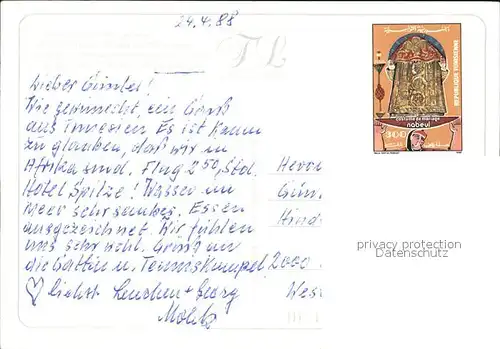 24.4.88
T L
Lieber Günter!
Wie gewünscht, ein Gruß
aus Tunesien Es ist kaum
zu glauben, daß wir in
Afrika sind. Flug 2 50, Std.
Hotel Spitze! Wasser im
Meer sehr sauber. Essen
ausgezeichnet. Wir fühlen
uns sehr wohl. Gruß an
die Gattin u. Tenniskumpel
herzlichst + Georg
REPUBLIQUE TUNISIENNE
costume de mariage
nabeul
300
Herrn
Gün
Hind
2000
Wes
privacy protection
Datenschutz